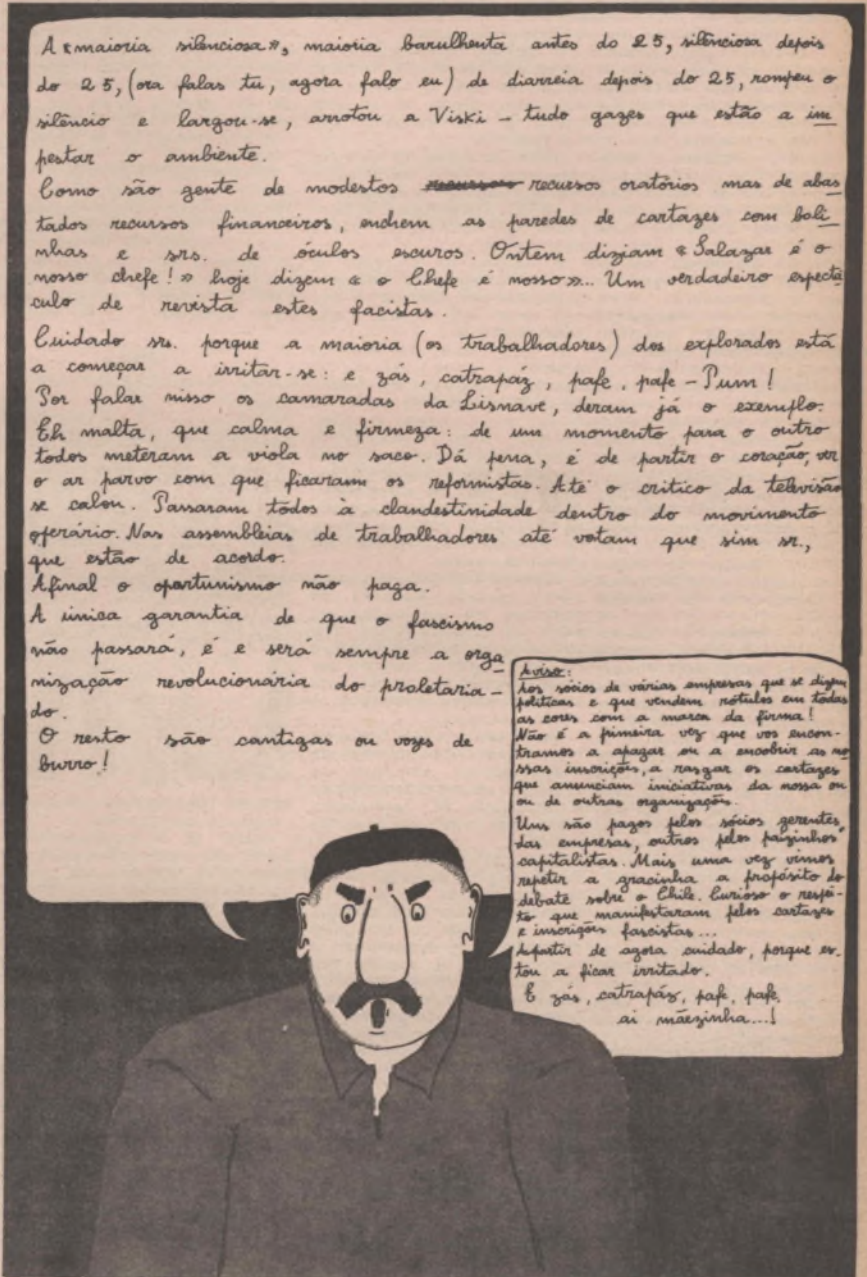 A «maioria silenciosa», maioria barulhenta antes do 25, silênciosa depois
do 25, (ora falas tu, agora falo eu) de diarreia depois do 25, rompeu o
silêncio e largou-se, arrotou a Viski - tudo gazes que estão a im
pestar o ambiente.
Como são gente de modestos recursos recursos oratórios mas de abas
tados recursos financeiros, enchem as paredes de cartazes com boli
nhas e srs. de óculos escuros. Ontem diziam «Salazar é o
nosso chefe!» hoje dizem « o Chefe é nosso»... Um verdadeiro espectá
culo de revista estes facistas.
Cuidado srs. porque a maioria (os trabalhadores) dos explorados está
a começar a irritar-se: e zás, catrapáz, pafe, pafe - Pum!
Por falar nisso os camaradas da Lisnave, deram já o exemplo.
Eh malta, que calma e firmeza: de um momento para o outro
todos meteram a viola no saco. Dá pena, é de partir o coração, ver
o ar parvo com que ficaram os reformistas. Até o critico da televisão
se calou. Passaram todos à clandestinidade dentro do movimento
operário. Nas assembleias de trabalhadores até votam que sim sr.,
que estão de acordo.
Afinal o oportunismo não paga.
A única garantia de que o fascismo
não passará, é e será sempre a orga
nização revolucionária do proletaria-
do.
O resto são cantigas ou vozes de
burro!
Aviso:
Aos sócios de várias empresas que se dizem
políticas e que vendem rótulos em todas
as cores com a marca da firma!
Não é a primeira vez que vos encon-
tramos a apagar ou a encobrir as no
ssas inscrições, a rasgar os cartazes
que anunciam iniciativas da nossa ou
ou de outras organizações.
Uns são pagos pelos sócios gerentes
das empresas, outros pelos paizinhos
capitalistas. Mais uma vez vimos
repetir a gracinha a propósito do
debate sobre o Chile. Curioso o respei-
to que manifestaram pelos cartazes
e inscrições fascistas...
Apartir de agora cuidado, porque es-
tou a ficar irritado.
E zás, catrapáz, pafe, pafe,
ai mãezinha...!